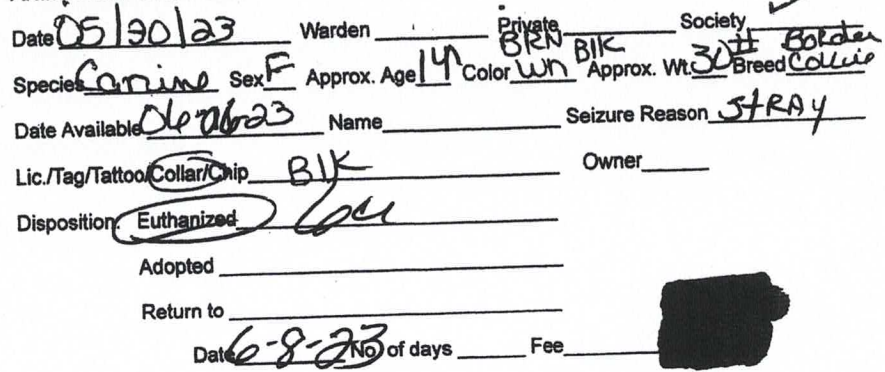 Date 05/30/23 Warden Private Society ✓
Species Canine Sex F Approx. Age 14 Color BRN BlK Wh Approx. Wt. 30# Breed Border Collie
Date Available 06-06-23 Name Seizure Reason STRAY
Lic./Tag/Tattoo/Collar/Chip BlK Owner
Disposition: Euthanized
Adopted
Return to
Date 6-8-23 No of days Fee